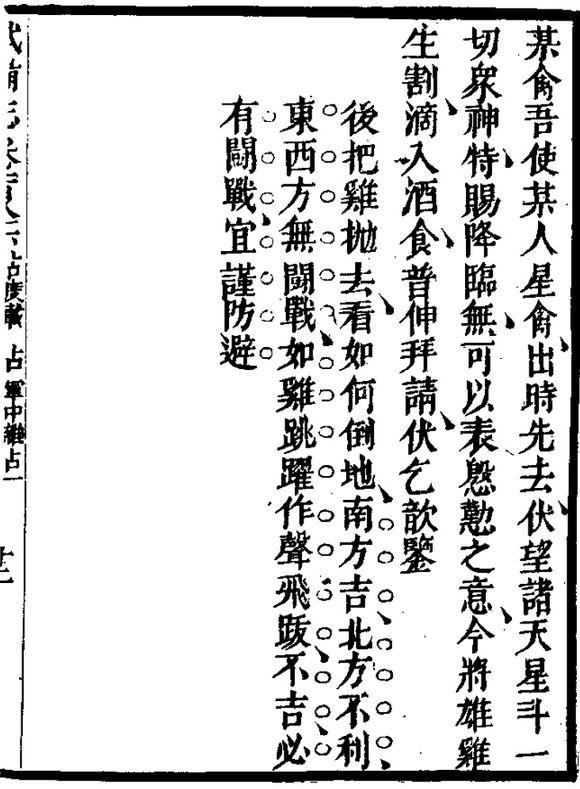 某禽吾使某人星禽出時先去伏望諸天星斗一
切衆神特賜降臨無可以表慇懃之意今將雄雞
生割滴入酒食普伸拜請伏乞歆鑒
後把雞拋去看如何倒地南方吉北方不利
東西方無鬪戰如雞跳躍作聲飛跋不吉必
有鬪戰宜謹防避
占度載 占 軍中雜占一